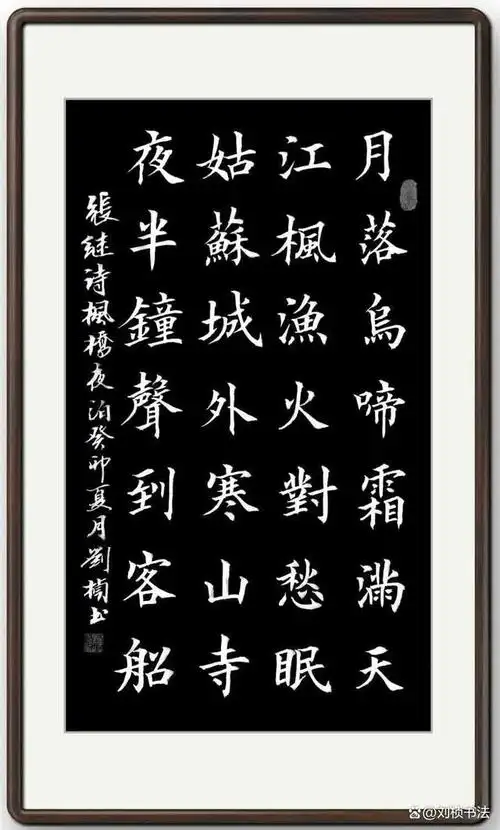 月落烏啼霜滿天
江楓漁火對愁眠
姑蘇城外寒山寺
夜半鐘聲到客船
張继诗楓橋夜泊癸卯夏月劉楨书
刘桢书法